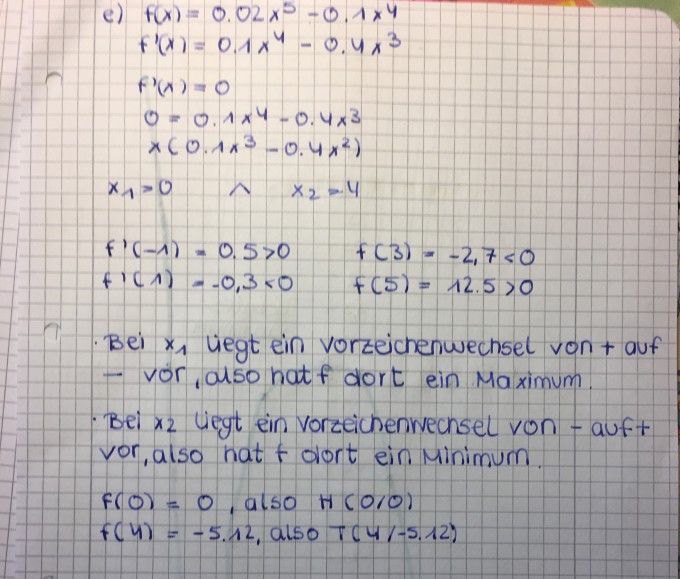 e) f(x) = 0.02x⁵ - 0.1x⁴
f'(x) = 0.1x⁴ - 0.4x³
f'(x) = 0
0 = 0.1x⁴ - 0.4x³
x(0.1x³ - 0.4x²)
x₁ = 0 ∧ x₂ = 4
f'(-1) = 0.5 > 0 f(3) = -2,7 < 0
f'(1) = -0,3 < 0 f(5) = 12.5 > 0
· Bei x₁ liegt ein Vorzeichenwechsel von + auf
- vor, also hat f dort ein Maximum.
· Bei x2 liegt ein Vorzeichenwechsel von - auf +
vor, also hat f dort ein Minimum.
f(0) = 0, also H(0/0)
f(4) = -5.12, also T(4/-5.12)